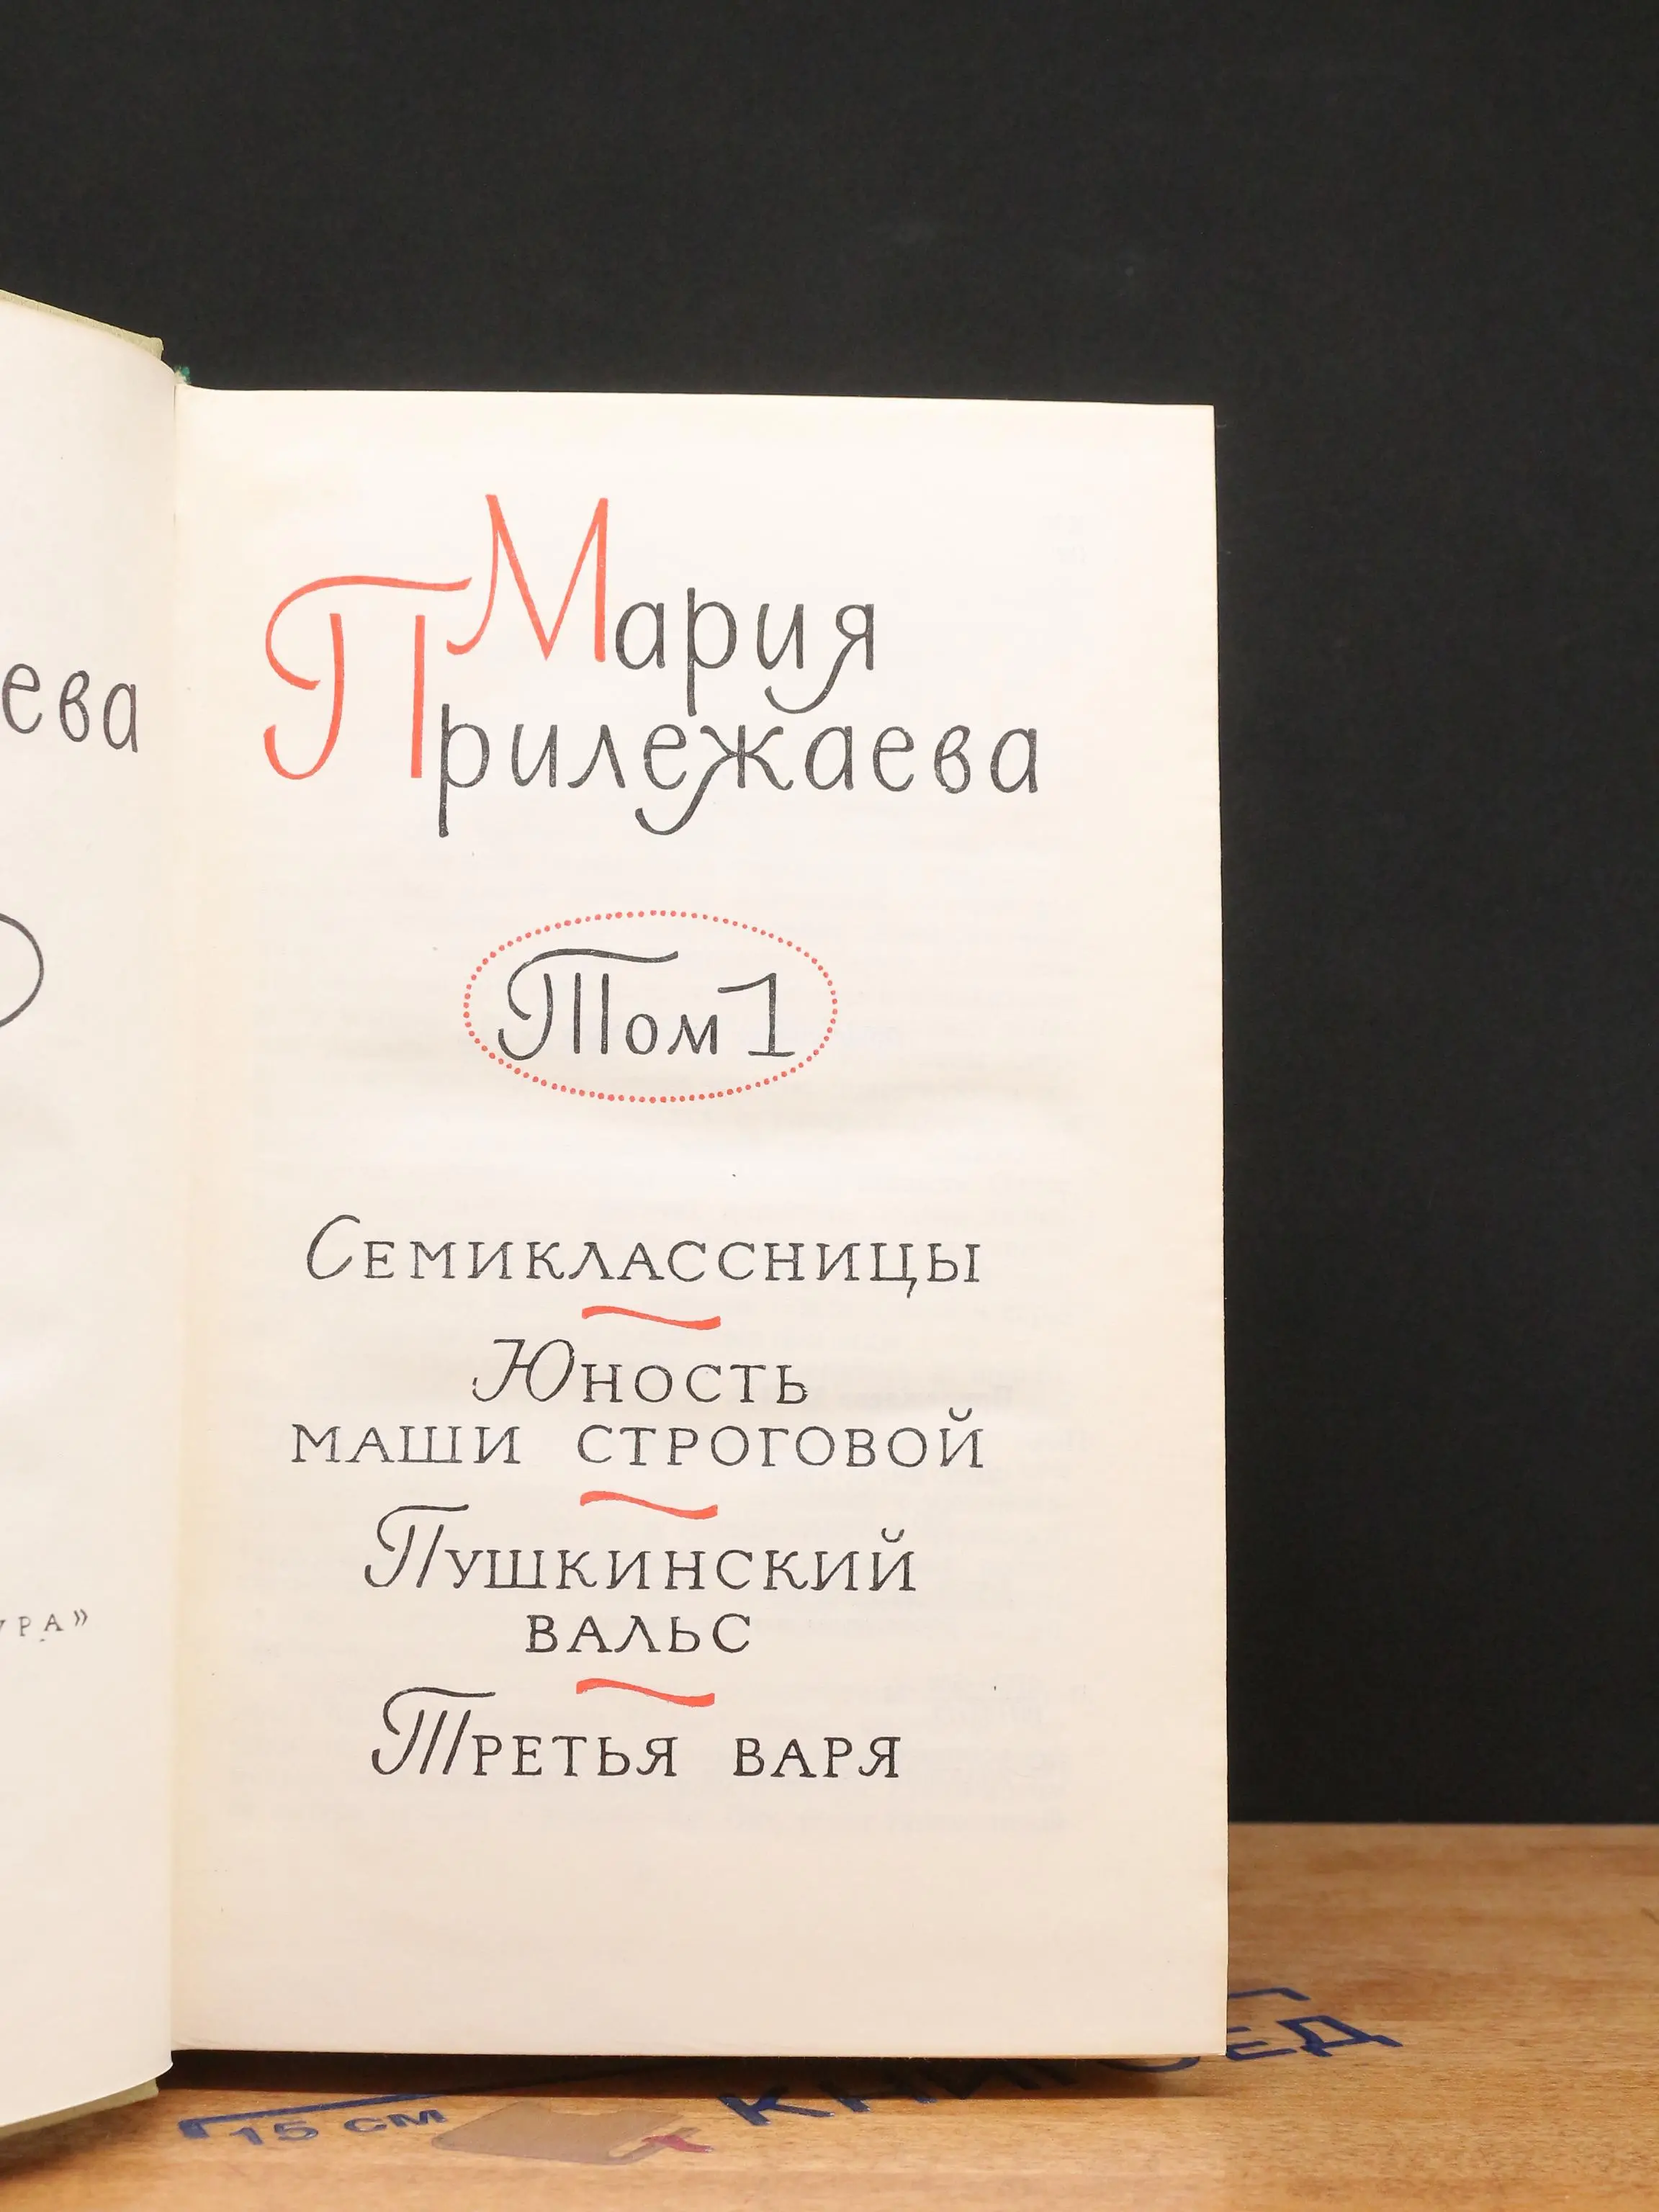 Мария
Прилежаева
Том 1
Семиклассницы
Юность
маши строговой
Пушкинский
вальс
Третья варя
15 см